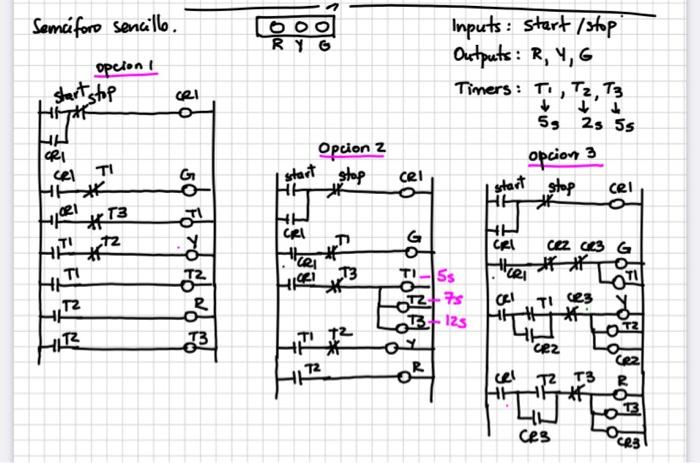 Semáforo sencillo.
R Y G
Inputs: start / stop
Outputs: R, Y, G
Timers: T1, T2, T3
5s 2s 5s
opcion 1
start stop CR1
CR1
CR1 T1 G
CR1 T3 T1
T1 T2 Y
T1 T2
T2 R
T2 T3
Opcion 2
start stop CR1
CR1
T1 G
CR1
CR1 T3 T1 - 5s
T2 - 7s
T3 - 12s
T1 T2 Y
T2 R
opcion 3
start stop CR1
CR1
CR2 CR3 G
CR1
T1
CR1 T1 CR3 Y
T2
CR2
CR2
CR1 T2 T3 R
T3
CR3
CR3